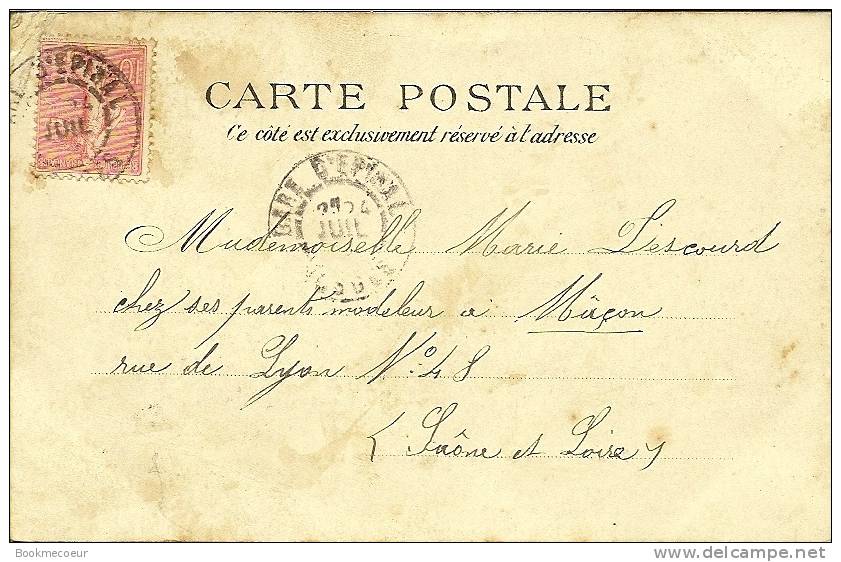 CARTE POSTALE
Ce côté est exclusivement réservé à l'adresse
GARE D'EPINAL
JUIL
VOSGES
Mademoiselle Marie Lescourd
chez ses parents modeleur a Mâcon
rue de Lyon N° 48
(Saône et Loire)
D'EPINAL
JUIL
10
Bookmecoeur
www.delcampe.net